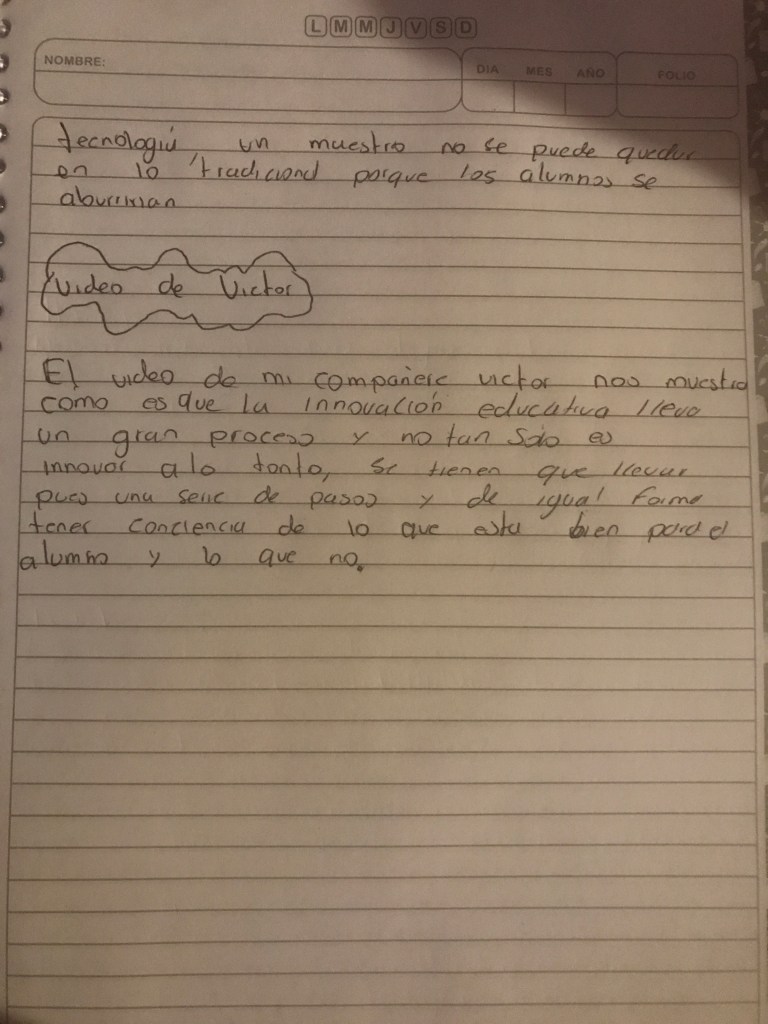 L M M J V S D
NOMBRE:
DIA MES AÑO
FOLIO
tecnología, un maestro no se puede quedar
en lo tradicional porque los alumnos se
aburririan
Video de Victor
El video de mi compañero victor nos muestra
como es que la innovación educativa lleva
un gran proceso y no tan solo es
innovar a lo tonto, se tienen que llevar
pues una serie de pasos y de igual forma
tener conciencia de lo que esta bien para el
alumno y lo que no.